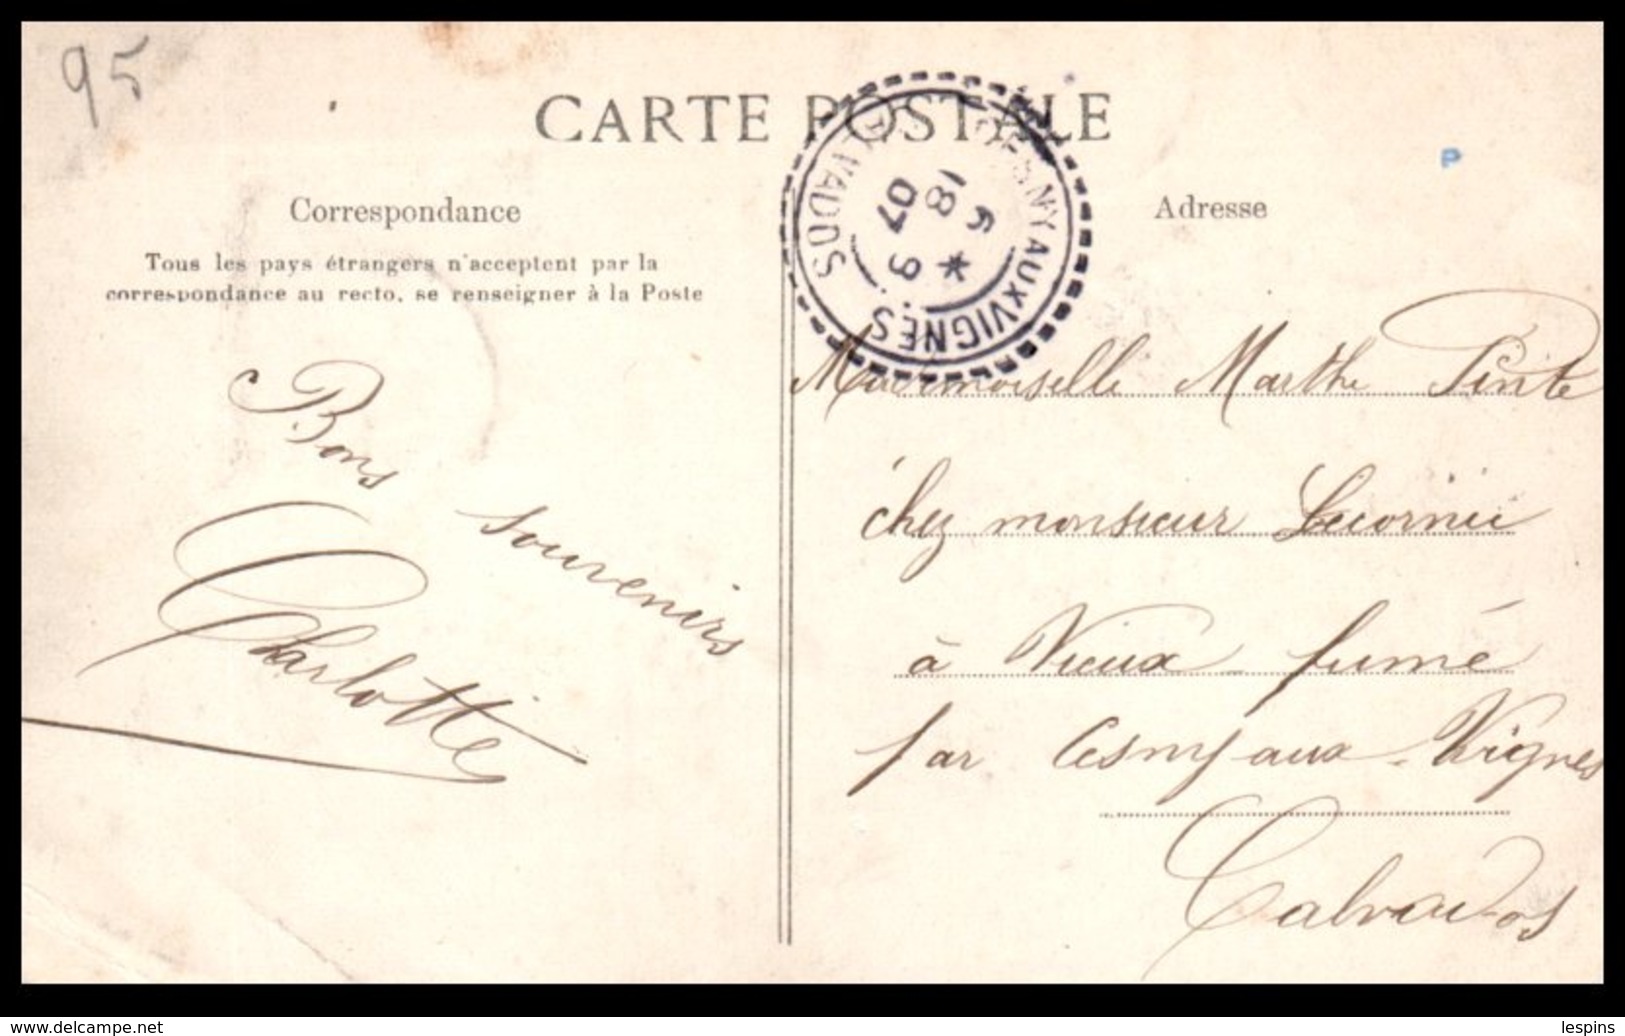 95
CARTE POSTALE
Correspondance
Tous les pays étrangers n'acceptent par la
correspondance au recto, se renseigner à la Poste
Bons
souvenirs
Charlotte
CESNY AUX VIGNES
CALVADOS
18
6 * 9
07
P
Adresse
Mademoiselle Marthe Pinte
chez monsieur Lecornu
à Vieux fumé
par Cesny aux Vignes
Calvados
www.delcampe.net
lespins